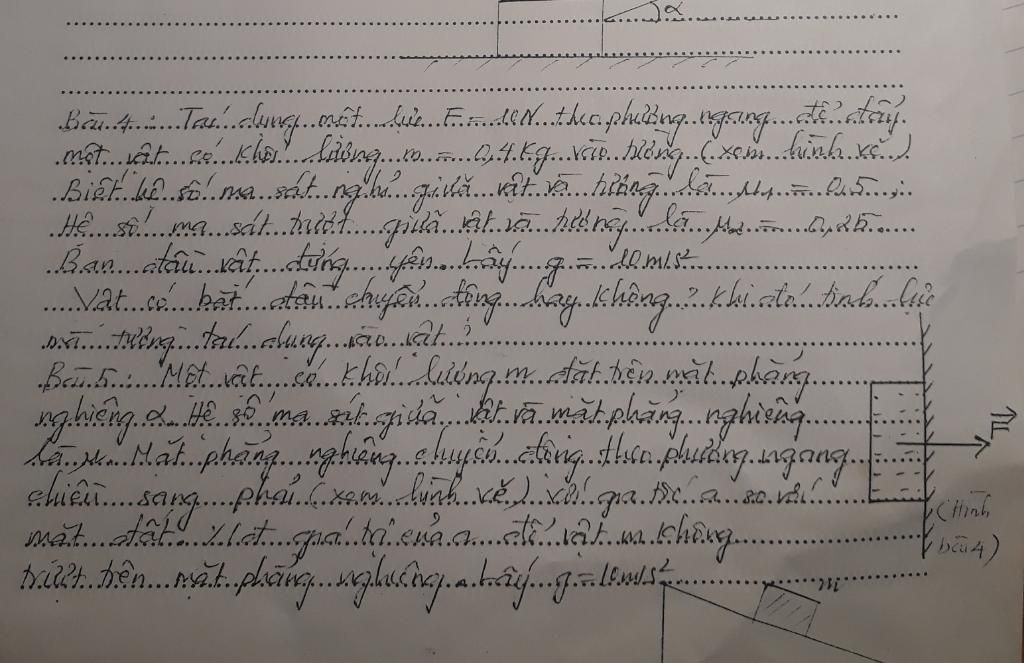 α
Bài 4: Tác dụng một lực F = 10N theo phương ngang để đẩy
một vật có khối lượng m = 0,4 kg vào tường (xem hình vẽ)
Biết hệ số ma sát nghỉ giữa vật và tường là μ1 = 0,5 ;
Hệ số ma sát trượt giữa vật và tường là μ2 = 0,25.
Ban đầu vật đứng yên. Lấy g = 10m/s²
Vật có bắt đầu chuyển động hay không? Khi đó tính lực
mà tường tác dụng vào vật?
Bài 5: Một vật có khối lượng m đặt trên mặt phẳng
nghiêng α. Hệ số ma sát giữa vật và mặt phẳng nghiêng
là μ. Mặt phẳng nghiêng chuyển động theo phương ngang
chiều sang phải (xem hình vẽ) với gia tốc a so với
mặt đất. giá trị của a để vật m không
trượt trên mặt phẳng nghiêng. Lấy g = 10m/s²
F
(Hình
bài 4)
m